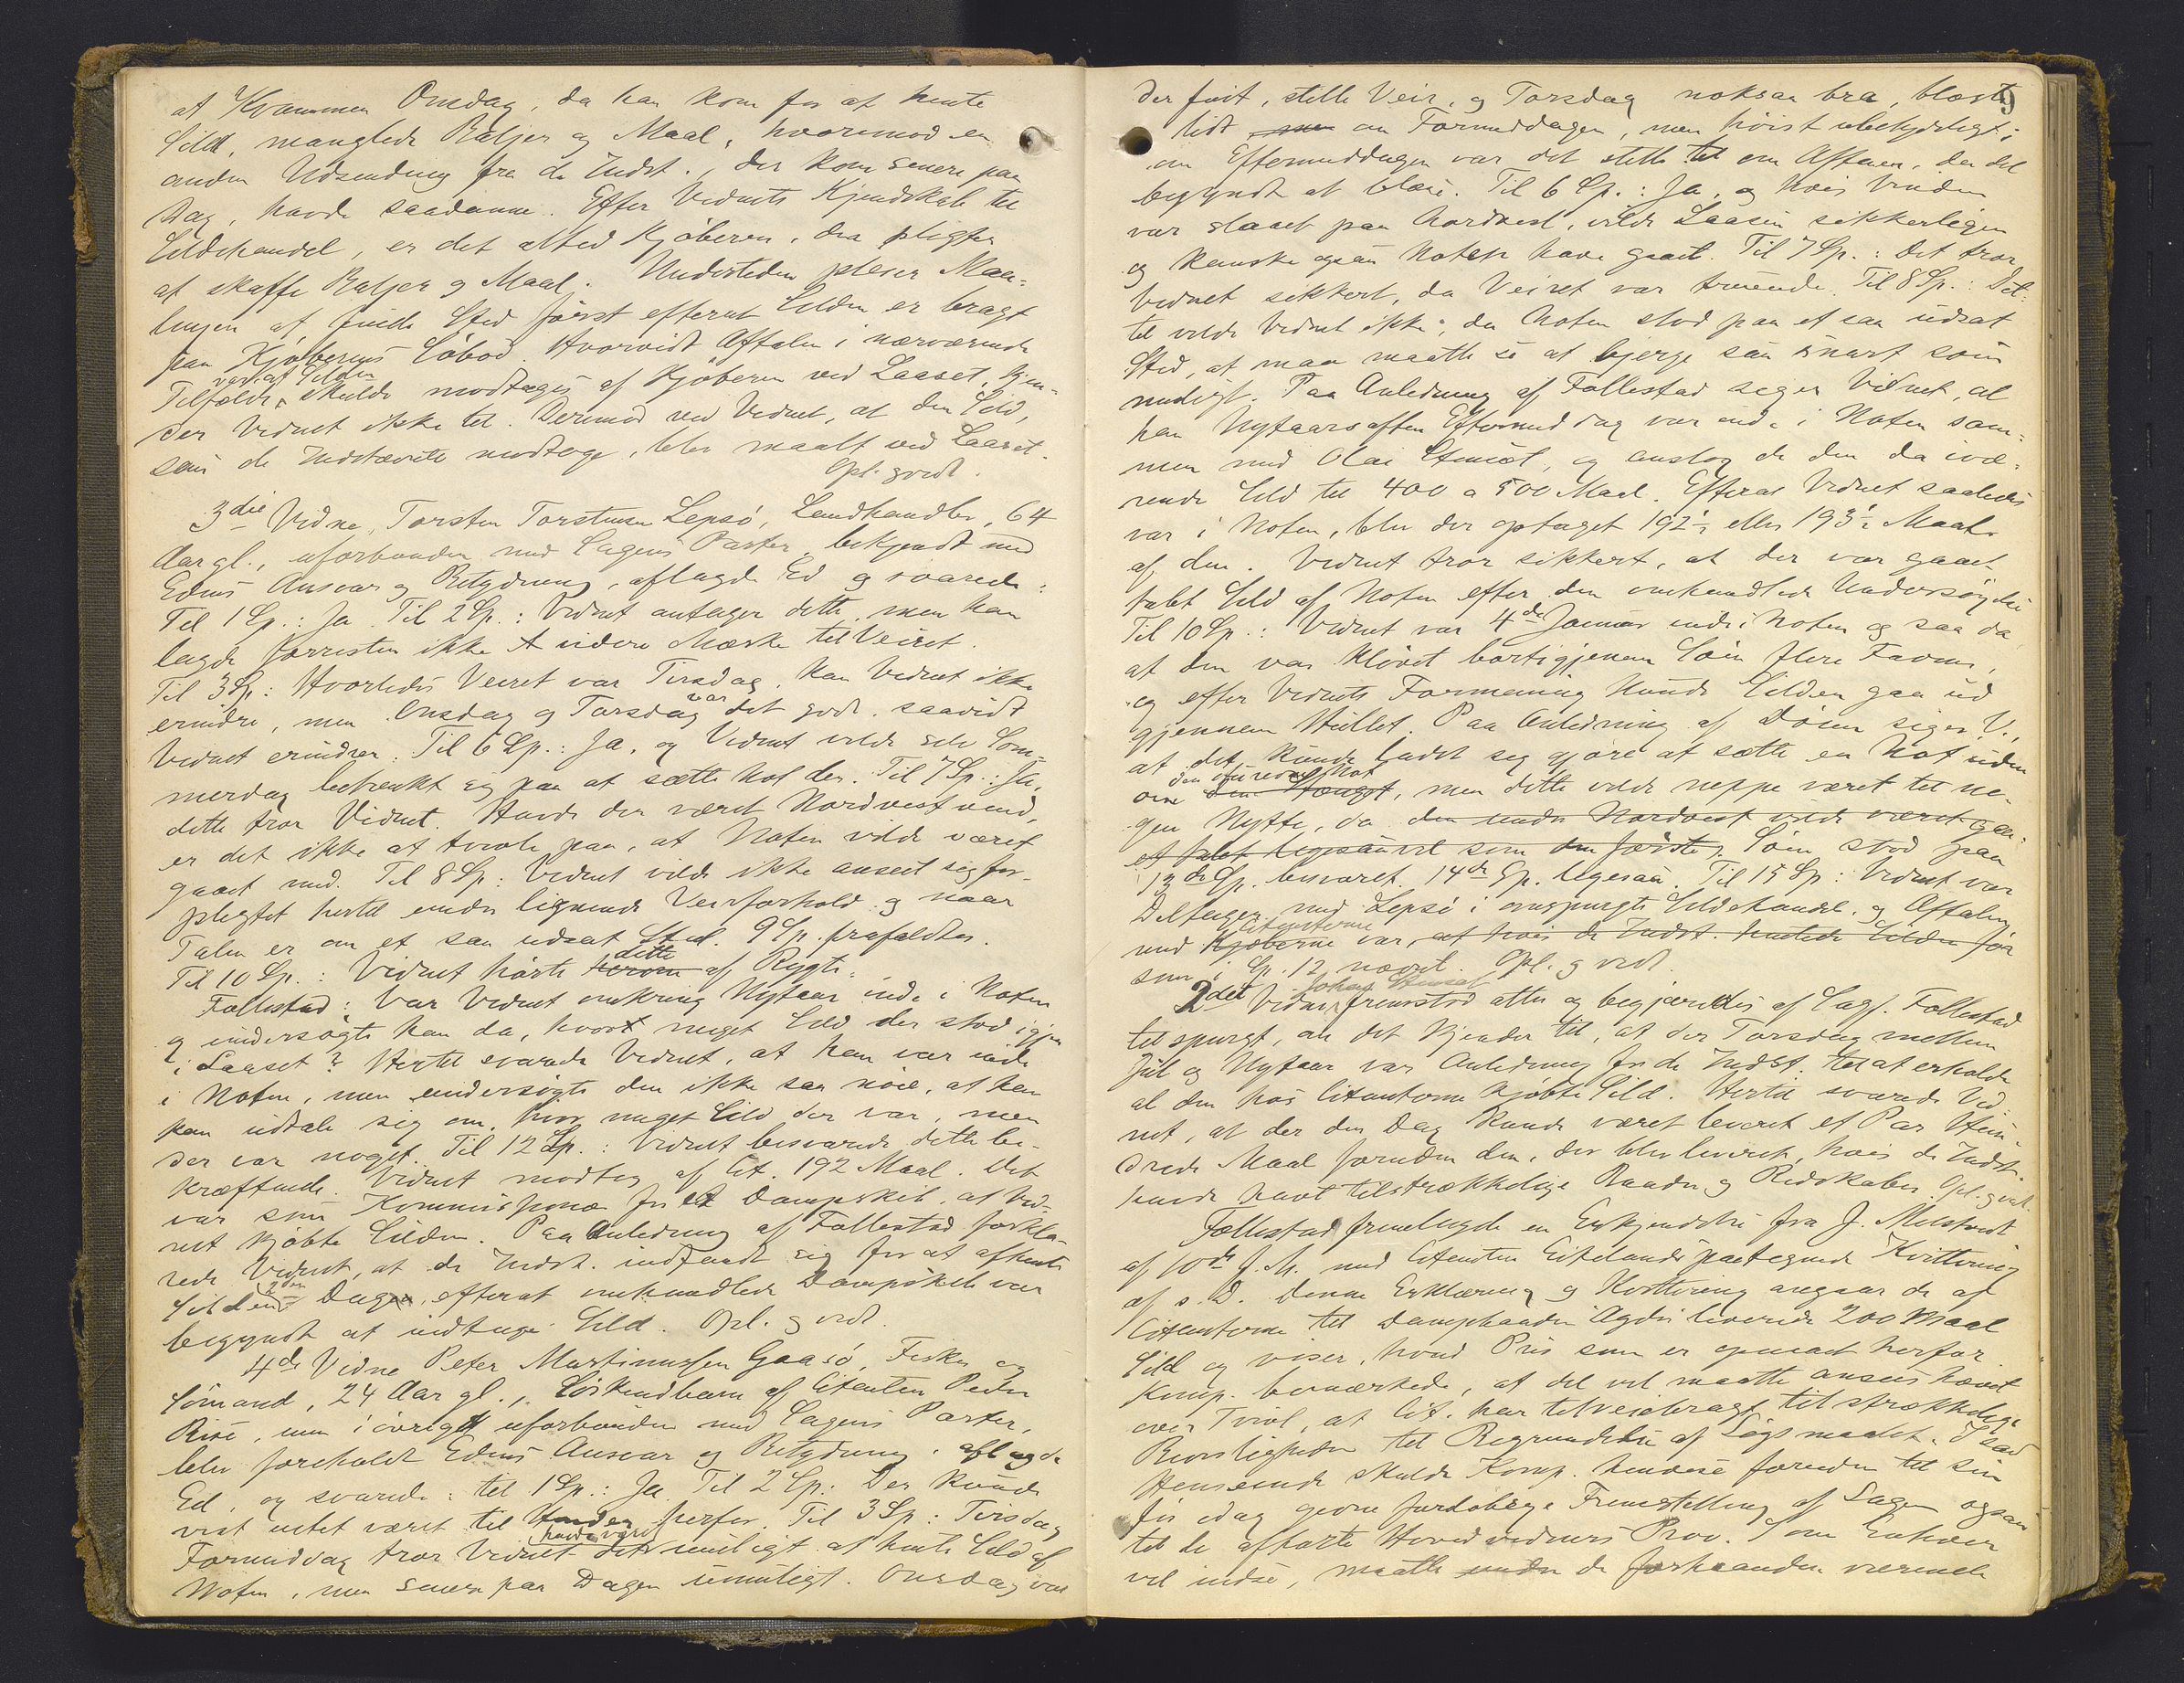 at Kvammen Onsdag, da han kom for at hente
Sild, manglede Baljer og Maal, hvorimod en
anden Udsending fra de Indst., der kom senere paa
Dag, havde saadanne. Efter Vidnets Kjendskab til
Sildehandel, er det altid Kjøberen, der pligter
at skaffe Baljer og Maal. Undertiden pleier Maa-
lingen af finde Sted først efterat Silden er bragt
paa Kjøberens Søbod. Hvorvidt Aftalen i nærværende
Tilfælde var, at Silden skulde modtages af Kjøberen ved Laaset, kjen-
der Vidnet ikke til. Derimod ved Vidnet, at den Sild,
som de Indstævnte modtoge, blev maalt ved Laaset.
Opl. vedt.
3die Vidne, Torsten Torstensen Lepsø, Landhandler, 64
Aar gl., uforbunden med Sagens Parter, bekjendt med
Edens Ansvar og Betydning, aflagde Ed og svarede:
Til 1 Sp.: Ja. Til 2 Sp.: Vidnet antager dette, men han
lagde forresten ikke videre Mærke til Veiret.
Til 3 Sp.: Hvorledes Veiret var Tirsdag, kan Vidnet ikke
erindre, men Onsdag og Torsdag var det godt, saavidt
Vidnet erindrer. Til 6 Sp.: Ja, og Vidnet vilde selv Som-
merdag betænkt sig paa at sætte Not der. Til 7 Sp.: Ja,
dette tror Vidnet. Havde der været Nordvestvind,
er det ikke at tvivle paa, at Noten vilde været
gaaet med. Til 8 Sp.: Vidnet vilde ikke anseet sig for-
pligtet hertil under lignende Veirforhold og naar
Talen er om et saa udsat Sted. 9 Sp. frafaldtes.
Til 10 Sp.: Vidnet hørte herom dette af Rygte.
Follestad: Var Vidnet omkring Nytaar inde i Noten
og undersøgte han da, hvor meget Sild der stod igjen
i Laaset? Hertil svarede Vidnet, at han var inde
i Noten, men undersøgte den ikke saa nøie, at han
kan udtale sig om, hvor meget Sild der var, men
der var noget. Til 12 Sp.: Vidnet besvarede dette be-
kræftende. Vidnet modtog af Cit. 192 Maal. Det
var som Kommissionær for et Dampskib, at Vid-
net kjøbte Silden. Paa Anledning af Follestad forkla-
rede Vidnet, at de Indst. indfandt sig for at afhente
Silden 2den Dagen, efterat omhandlede Dampskib var
begyndt at indtage Sild. Opl. vedt.
4de Vidne Peter Martinussen Gaasø, Fisker og
Sømand, 24 Aar gl., Søskendbarn af Citanten Peder
Rise, men iøvrigt uforbunden med Sagens Parter,
blev foreholdt Edens Ansvar og Betydning, aflagde
Ed, og svarede: til 1 Sp.: Ja. Til 2 Sp.: Der kunde
vist intet været til Hinder herfor. Til 3 Sp.: Tirsdag
Formiddag tror Vidnet det havde været muligt at hente Sild af
Noten, men senere paa Dagen umuligt. Onsdag var
9
der fint, stille Veir, og Torsdag noksaa bra, blæste
lidt men om Formiddagen, men høist ubetydeligt;
om Eftermiddagen var det stille til om Aftenen, da det
begyndte at blæse. Til 6 Sp.: Ja, og hvis Vinden
var slaaet paa Nordvest, vilde Laasen sikkerligen
og kanske ogsaa Noten have gaaet. Til 7 Sp.: Det tror
Vidnet sikkert, da Veiret var truende. Til 8 Sp.: Det-
te vilde Vidnet ikke, da Noten stod paa et saa udsat
Sted, at man maatte se at bjerge saa snart som
muligt. Paa Anledning af Follestad siger Vidnet, at
han Nytaarsaften Eftermiddag var inde i Noten sam-
men med Olai Stensøt, og anslog de den da ivæ-
rende Sild til 400 a 500 Maal. Efterat Vidnet saaledes
var i Noten, blev der optaget 192½ eller 193½ Maal
af den. Vidnet tror sikkert, at der var gaaet
tabt Sild af Noten efter den omhandlede Undersøgelse
Til 10 Sp.: Vidnet var 4de Januar inde i Noten og saa da
at den var kløvet bortigjennem Søm flere Favne,
og efter Vidnets Formening kunde Silden gaa ud
gjennem Hullet. Paa Anledning af Dommeren siger V.,
at det kunde ladet sig gjøre at sætte en Not uden
om den Stængt, men dette vilde neppe været til no-
gen Nytte, da den under Nordvest vilde været gaa-
et tabt ligesaavel som den første. Søen stod paa
13de Sp. besvaret. 14de Sp. ligesaa. Til 15 Sp.: Vidnet var
Deltager med Lepsø i omspurgte Sildehandel, og Aftalen
med Kjøberne Citanterne var, at hvis de Indst. hentede Silden før
som i Sp. 12 nævnt. Opl. vedt.
2det Vidne Johan Stenset fremstod atter og begjæredes af Sagf. Follestad
tilspurgt, om det kjender til, at der Torsdag mellem
Jul og Nytaar var Anledning for de Indst. til at erholde
al den hos Citanterne kjøbte Sild. Hertil svarede Vid-
net, at der den Dag kunde været leveret et Par Hun-
drede Maal foruden den, der blev leveret, hvis de Indst.
havde havt tilstrækkelige Baade og Redskaber. Opl. vedt.
Follestad fremlagde en Erkjendelse fra J.
af 10de f. M. med Citanten Eitelands paategnede Kvittering
af s. D. Denne Erklæring og Kvittering angaar de af
Citanterne til Dampbaaden Agdes leverede 200 Maal
Sild og viser, hvad Pris som er opnaaet herfor.
Komp. bemærkede, at det vel maatte ansees hævet
over Tvivl, at Cit. har tilveiebragt tilstrækkelige
Bevisligheder til Begrundelse af Søgsmaalet. I saa
Henseende skulde Komp. henvise foruden til sin
før idag givne foreløbige Fremstilling af Sagen ogsaa
til de afhørte Hovedvidners Prov. Som Enhver
vil indse, maatte under de forhaanden værende